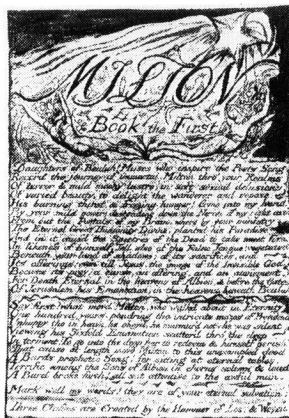 MILTON
Book the First
Daughters of Beulah! Muses who inspire the Poets Song
Record the journey of immortal Milton thro' your Realms
Of terror & mild moony lustre, in soft sexual delusions
Of varied beauty, to delight the wanderer and repose
His burning thirst & freezing hunger! Come into my hand
By your mild power; descending down the Nerves of my right arm
From out the Portals of my Brain, where by your ministry
The Eternal Great Humanity Divine. planted his Paradise,
And in it caus'd the Spectres of the Dead to take sweet forms
In likeness of himself.
Beneath your land of shadows: of its sacrifices, and
its offerings; even till Jesus, the image of the Invisible God
Became its prey; a curse, an offering, and an atonement,
For Death Eternal in the heavens of Albion, & before the Gates
Of Jerusalem his Emanation, in the heavens beneath Beulah
Say first! what mov'd Milton, who walkd about in Eternity
One hundred years, pondring the intricate mazes of Providence
Unhappy tho in heav'n, he obey'd, he murmur'd not. he was silent
Viewing his Sixfold Emanation scatter'd thro' the deep
In torment! To go into the deep her to redeem & himself perish?
at length mov'd Milton to this unexampled deed
A Bards prophetic Song! for sitting at eternal tables,
Terrific among the Sons of Albion in chorus solemn & loud
A Bard broke forth! all sat attentive to the awful man.
Mark well my words! they are of your eternal salvation:
Three Classes are Created by the Hammer of Los, & Woven